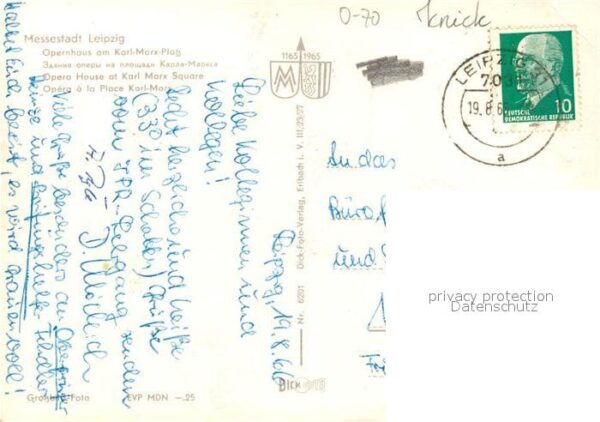 O-70 Knick
Messestadt Leipzig
Opernhaus am Karl-Marx-Platz
Здание оперы на площади Карла-Маркса
Opera House at Karl Marx Square
Opéra à la Place Karl-Marx
1165 1965
M
LEIPZIG N1
7031
19.8.6
a
10
DEUTSCHE
DEMOKRATISCHE REPUBLIK
Leipzig, 19.8.66
Liebe Kolleginnen und
Kollegen!
Recht herzliche und heiße
(33° im Schatten) Grüße
vom Lehrgang senden
D.
Viele Grüße besonders an
und
Haltet Euch bereit, es wird grauenvoll!
An das
Büro f
und
privacy protection
Datenschutz
Nr. 6201 Dick-Foto-Verlag, Erlbach i. V. III/23/27
DICK FOTO
Großbild-Foto EVP MDN -.25